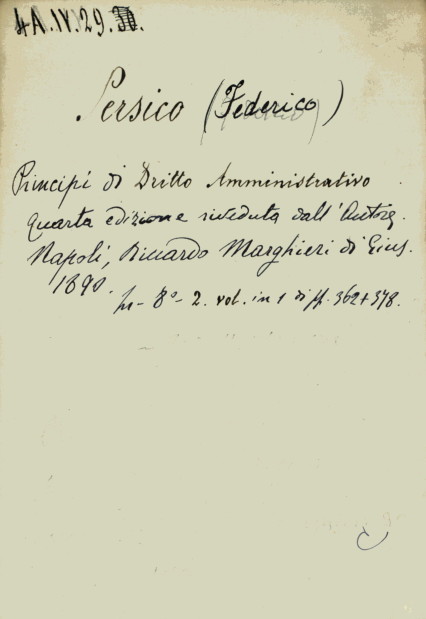 4A.IV.29.
Persico (Federico)
Principi di Dritto Amministrativo
quarta edizione riveduta dall'Autore.
Napoli, Riccardo Marghieri di Gius.
1890.
in-8º-2. vol. in 1 di pp. 362+378.